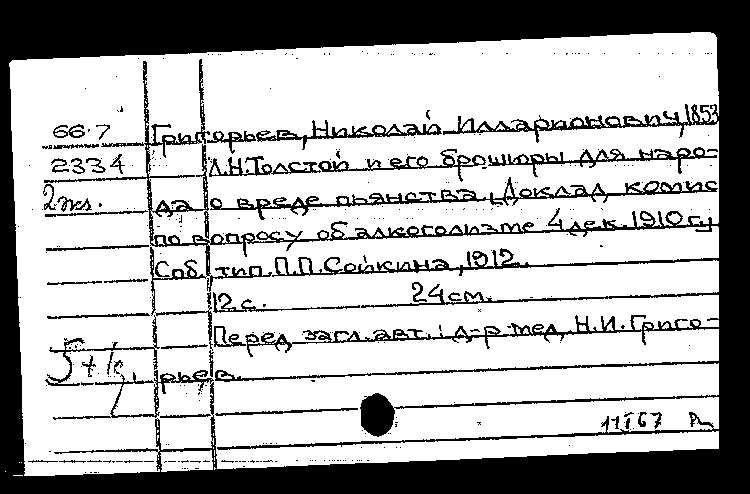 66-7 Григорьев, Николай Илларионович, 1853
2334 Л.Н.Толстой и его брошюры для наро-
2 экз. да о вреде пьянства. [Доклад комис
по вопросу об алкоголизме 4 дек. 1910 г.]
Спб. тип. П.П.Сойкина, 1912.
12 с. 24 см.
Перед загл. авт.: д-р мед. Н.И.Григо-
рьев.
11 I 67